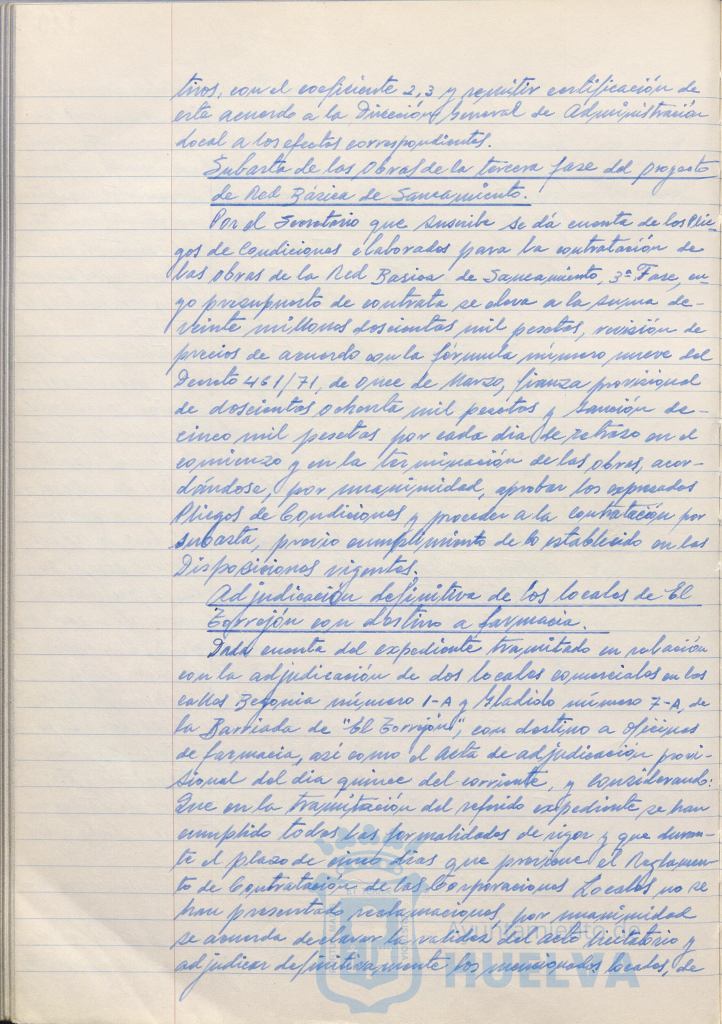 tivos, con el coeficiente 2,3 y remitir certificación de
este acuerdo a la Dirección General de Administración
Local a los efectos correspondientes.
Subasta de las Obras de la tercera fase del proyecto
de Red Básica de Saneamiento.
Por el Secretario que suscribe se dá cuenta de los Plie-
gos de Condiciones elaborados para la contratación de
las obras de la Red Basica de Saneamiento, 3ª Fase, cu-
yo presupuesto de contrata se eleva a la suma de-
veinte millones doscientas mil pesetas, revisión de
precios de acuerdo con la fórmula número nueve del
Decreto 461/71, de once de Marzo, fianza provisional
de doscientas ochenta mil pesetas y sanción de-
cinco mil pesetas por cada dia de retraso en el
comienzo y en la terminación de las obras, acor-
dándose, por unanimidad, aprobar los expresados
Pliegos de Condiciones y proceder a la contratación por
subasta, previo cumplimiento de lo establecido en las
Disposiciones vigentes.
Adjudicación definitiva de los locales de El
Torrejón con destino a farmacia.
Dada cuenta del expediente tramitado en relación
con la adjudicación de dos locales comerciales en las
calles Begonia número 1-A y Gladiolo número 7-A, de
la Barriada de "El Torrejón", con destino a Oficinas
de farmacia, así como el acta de adjudicación provi-
sional del dia quince del corriente, y considerando:
Que en la tramitación del referido expediente se han
cumplido todas las formalidades de rigor y que duran-
te el plazo de cinco dias que previene el Reglamen-
to de Contratación de las Corporaciones Locales no se
han presentado reclamaciones, por unanimidad
se acuerda declarar la validez del acto licitatorio y
adjudicar definitivamente los mencionados locales, de
Ayuntamiento de
HUELVA